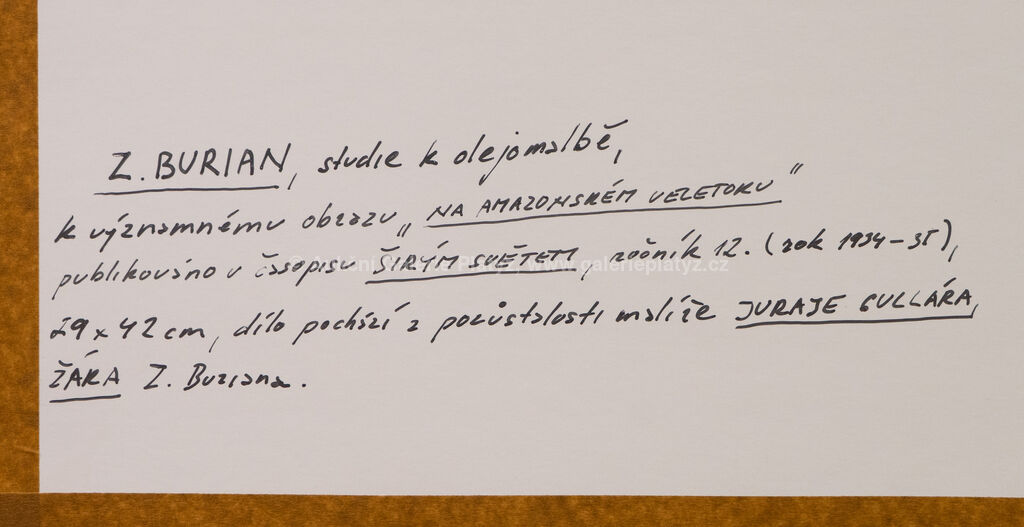 Z. BURIAN, studie k olejomalbě,
k významnému obrazu „NA AMAZONSKÉM VELETOKU"
publikováno v časopisu ŠIRÝM SVĚTEM, ročník 12. (rok 1934-35),
29 x 42 cm, dílo pochází z pozůstalosti malíře JURAJE CULLÁRA,
ŽÁKA Z. Buriana.
www.galerieplatyz.cz